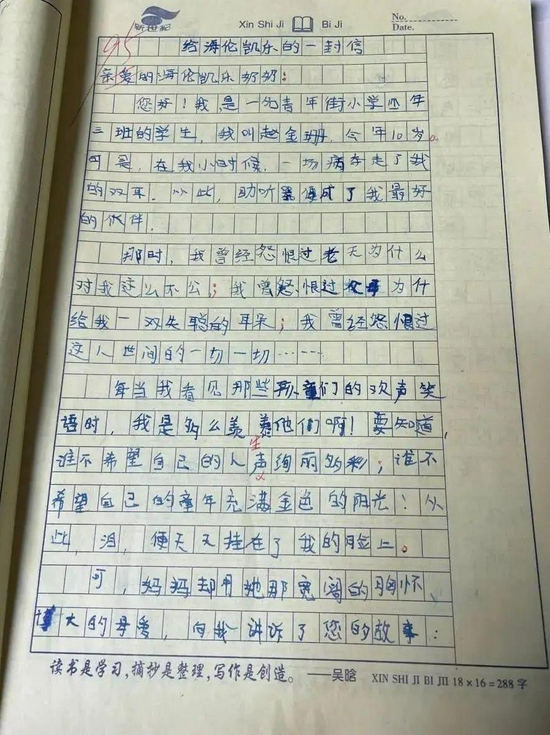 新世纪
Xin Shi Ji Bi Ji
No.
Date.
95
给海伦凯尔的一封信
亲爱的海伦凯尔奶奶:
您好!我是一先青年街小学四年
三班的学生,我叫赵金珊,今年10岁。
可是,在我小时候,一场病夺走了我
的双耳。从此,助听器便成了我最好
的伙伴.
那时,我曾经怨恨过老天为什么
对我这么不公;我曾怨恨过父母为什
给我一双失聪的耳朵;我曾经怨恨过
这人世间的一切一切……
每当我看见那些孩童们的欢声笑
语时,我是多么羡慕他们啊!要知道,
谁不希望自己的人声绚丽多彩;谁不
生
希望自己的童年充满金色的阳光!从
此,泪,便天天挂在了我的脸上。
可,妈妈却用她那宽阔的胸怀、
博大的母爱,向我讲诉了您的故事:
读书是学习,摘抄是整理,写作是创造。——吴晗
XIN SHI JI BI JI 18×16=288字